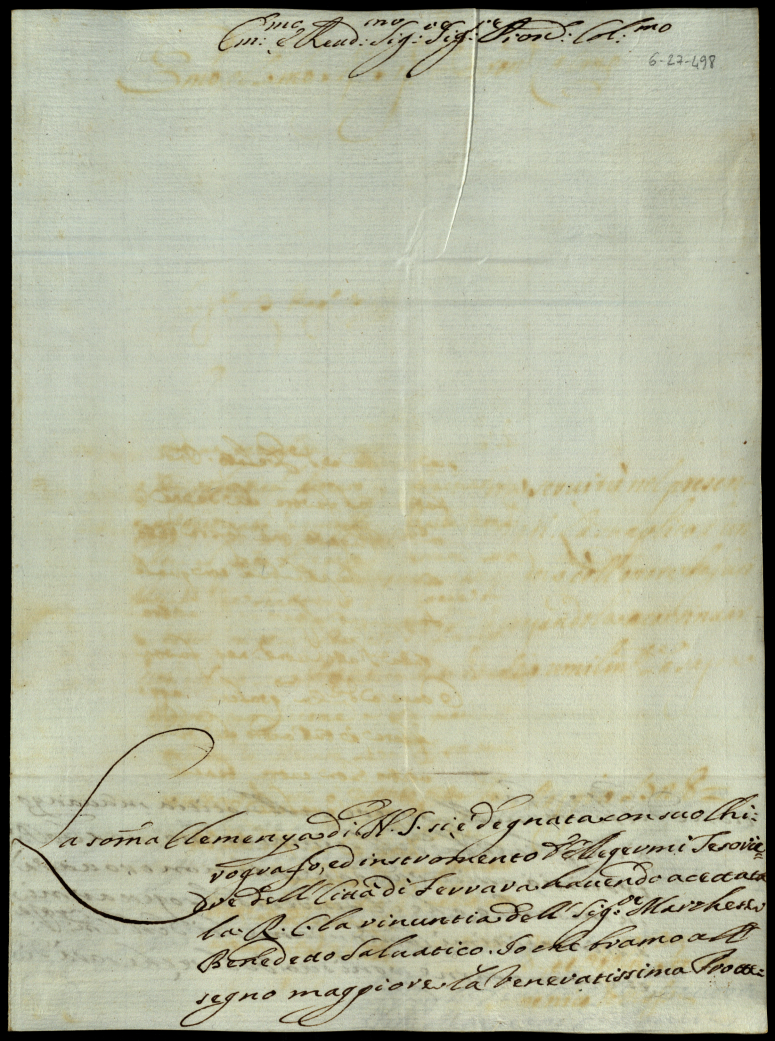 Em:mo e Reud:mo Sig:re Sig:re Pron: Col:mo
6-27-498
La som̃a Clemenza di N. S. si è degnata con suo Chi:
rografo, ed instromento d'ellegermi Tesorie:
re dell Città di Ferrara hauendo accettata
la R. C. la rinuntia dell Sig:re Marchese
Benedetto Saluatico. Io che bramo a
segno maggiore la Veneratissima Prote: